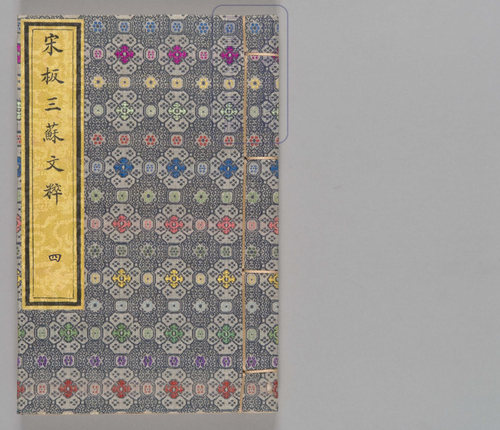 宋板三蘇文粹
四